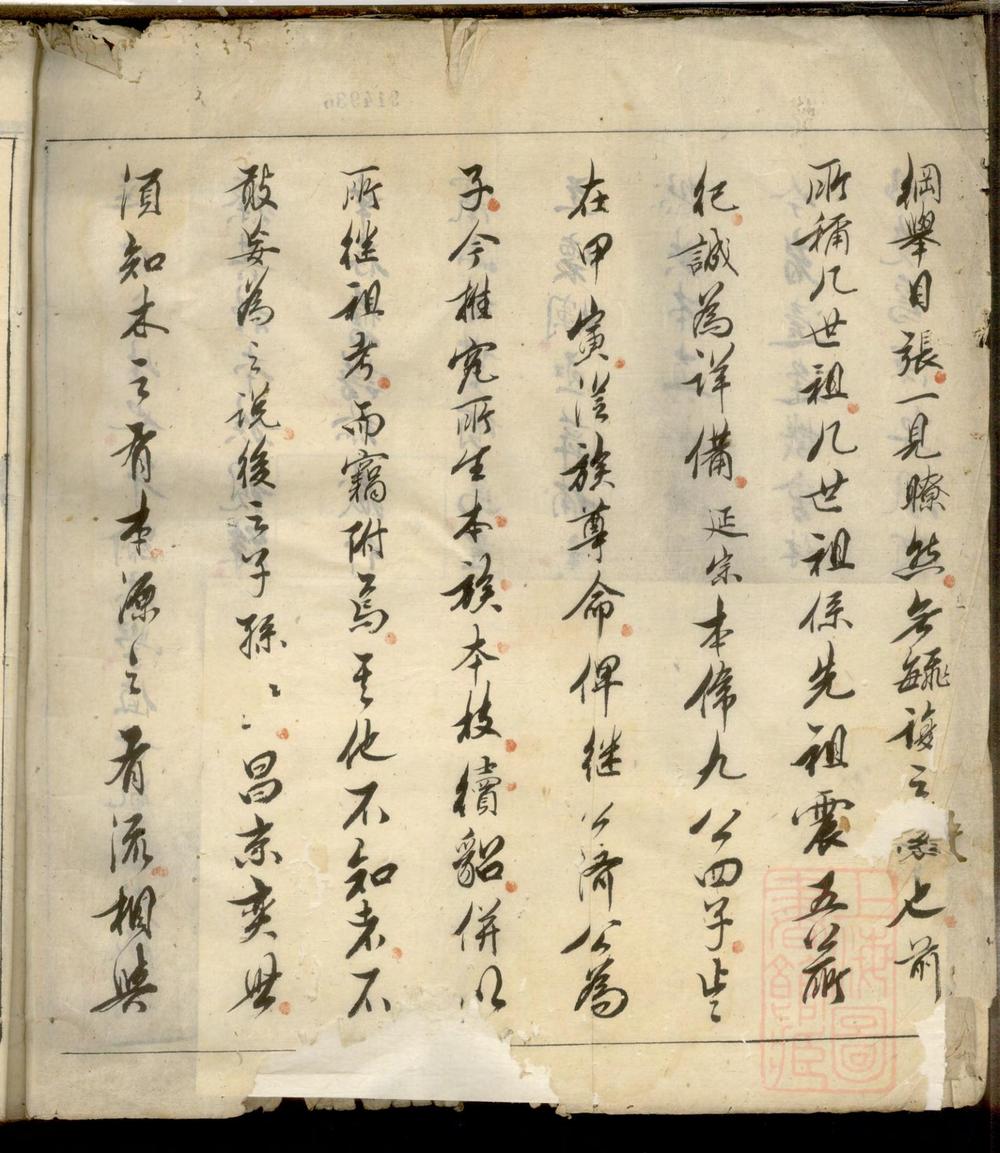 綱舉目張一見瞭然無難複之患也前
所稱几世祖几世祖係先祖震五公所
纪誠為詳備延宗本係九公四子
在甲寅從族尊命俾继公濟公為
子今推究所生本族本枝續貂併以
所继祖考而竊附焉其他不知者不
敢妄為之說後之子孫〻昌熾奕世
須知木之有本源之有流相與